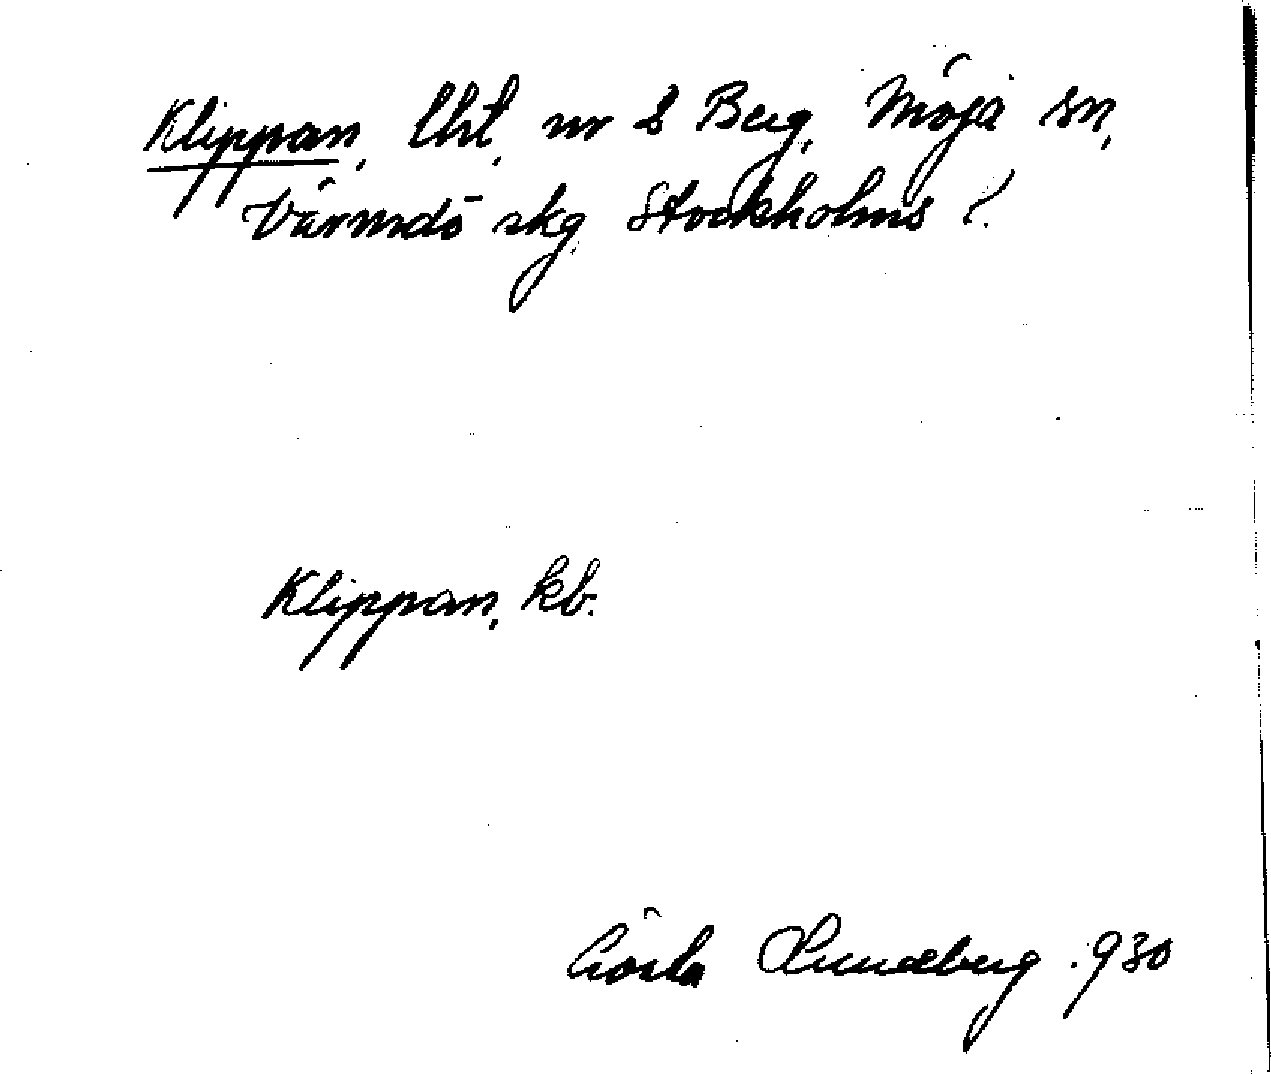 Klippan, lht, nr 2 Berg, Möja sn,
Värmdö skg Stockholms l.
Klippan, kb.
Gösta Lundberg. 930